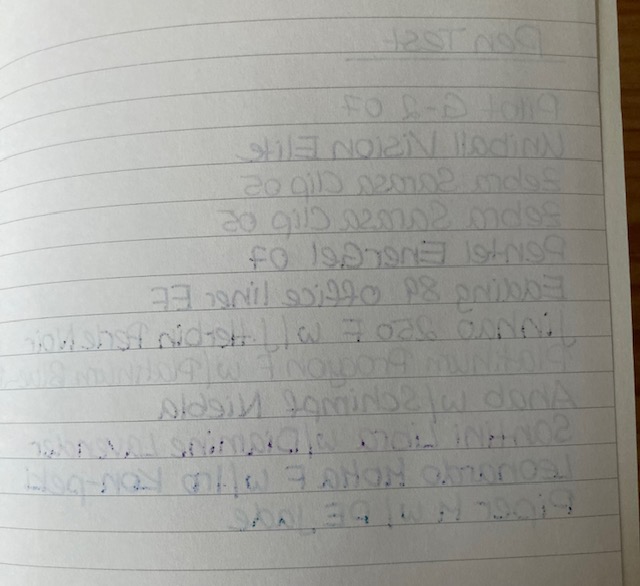 Pen Test
Pilot G-2 07
Uniball Vision Elite
Zebra Sarasa Clip 05
Zebra Sarasa Clip 05
Pentel EnerGel 07
Edding 89 office liner EF
Jinhao 250 F w/ J. Herbin Perle Noir
Platinum Procyon F w/ Platinum Blue-
Anab w/ Schimpf Niebla
Santini Libra w/ Diamine Lavender
Leonardo MoHa F w/ Iro Kon-peki
w/ PE Jade